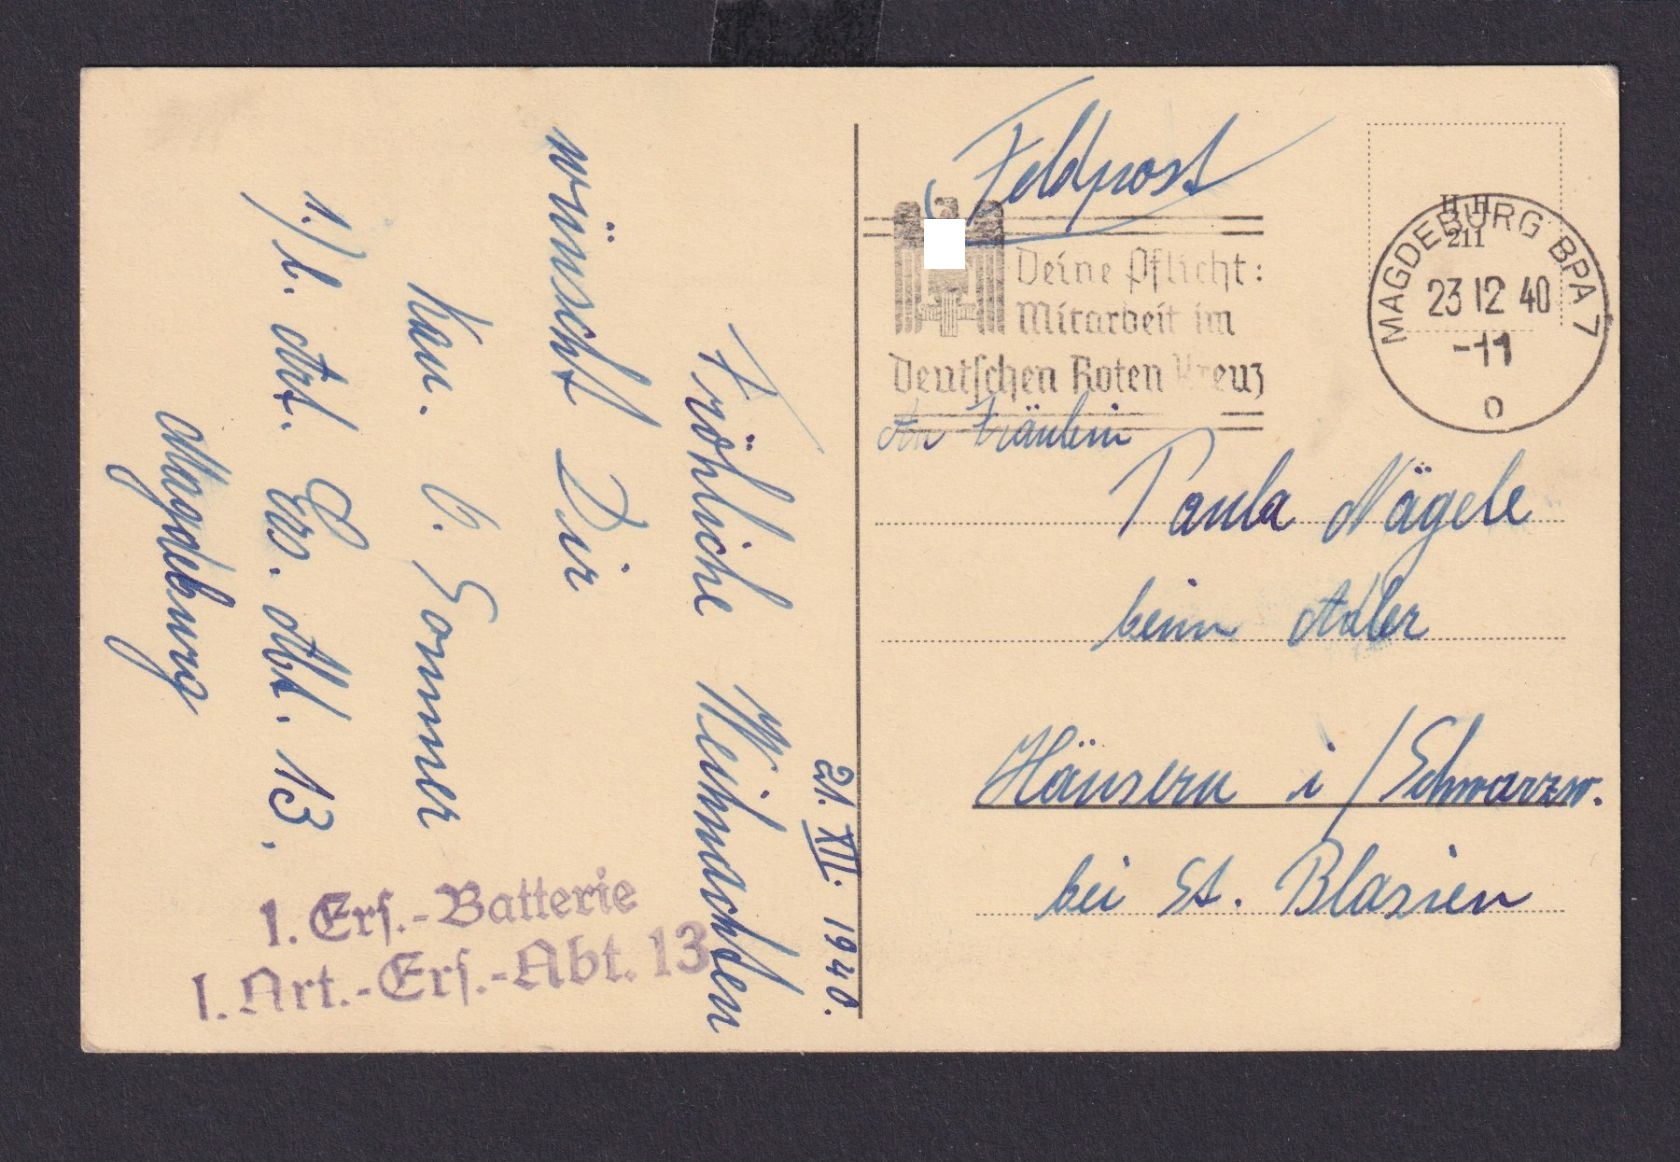 21. XII. 1940.
Fröhliche Weihnachten
wünscht Dir
Kan. O. Sommer
1./l. Art. Ers. Abt. 13.
Magdeburg
1. Erſ.-Batterie
l. Art.-Erſ.-Abt. 13
Feldpost
Deine Pflicht:
Mitarbeit im
Deutſchen Roten Kreuz
H H
211
MAGDEBURG BPA 7
23 12 40
-11
o
An Fräulein
Paula Nägele
beim Adler
Häusern i/Schwarzw.
bei St. Blasien